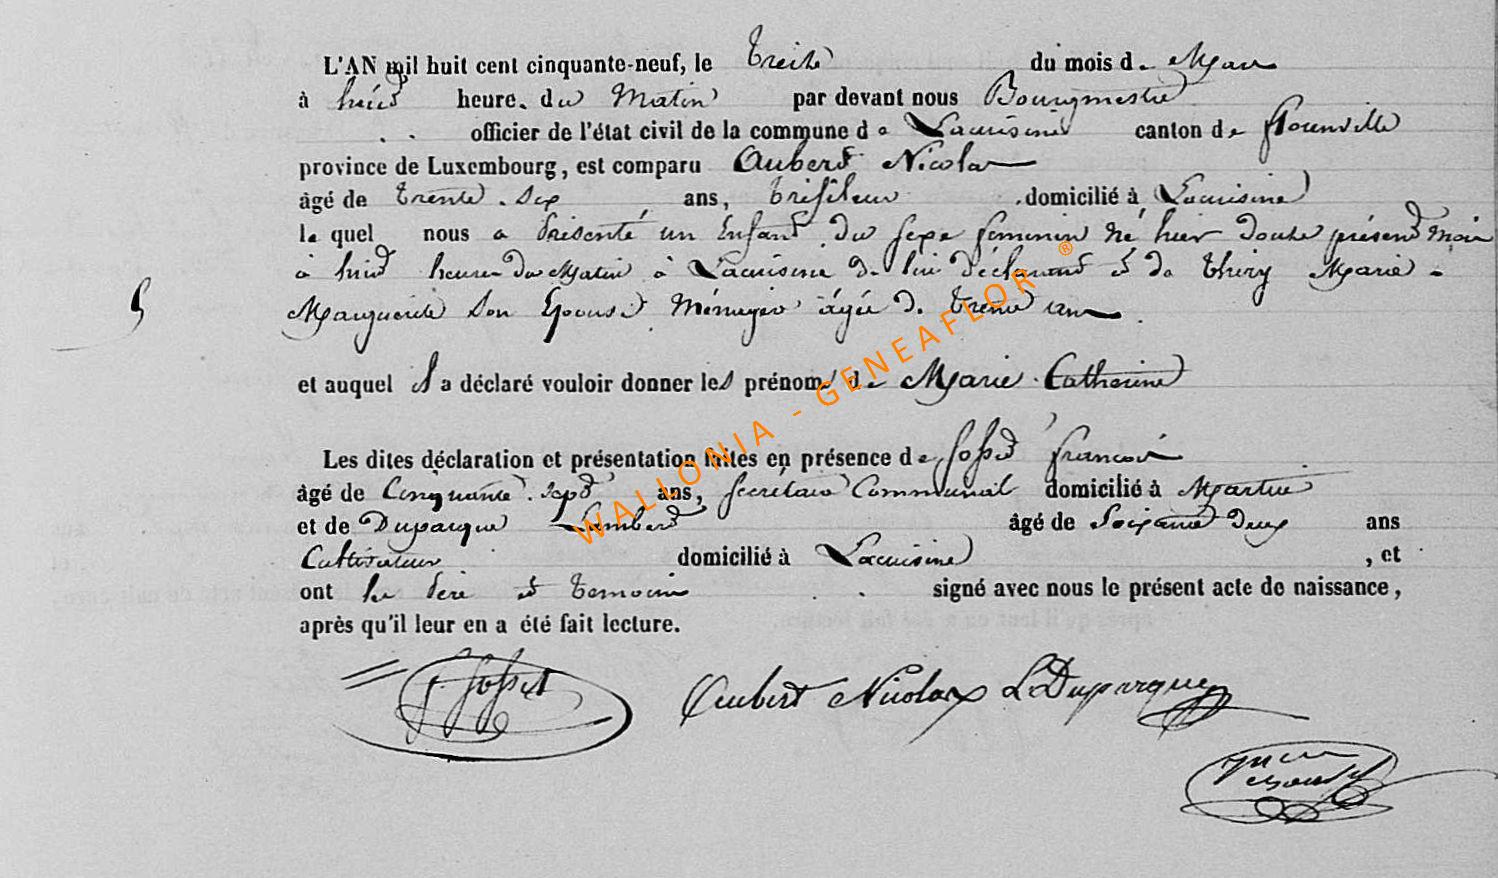 L'AN mil huit cent cinquante-neuf, le Treize du mois de Mars
à huit heures du Matin par devant nous Bourgmestre
officier de l'état civil de la commune de Lacuisine canton de florenville
province de Luxembourg, est comparu Aubert Nicolas
âgé de trente-six ans, trifileur domicilié à Lacuisine
le quel nous a présenté un Enfant du sexe feminin né hier douze présent mois
à huit heures du Matin à Lacuisine de lui déclarant et de Thiry Marie-
Marguerite son Epouse Ménagère âgée de trente ans
5
et auquel il a déclaré vouloir donner les prénoms de Marie Catherine
Les dites déclaration et présentation faites en présence de Josset françois
âgé de Cinquante-sept ans, secrétaire Communal domicilié à Martué
et de Duparque Lambert âgé de Soixante deux ans
Cultivateur domicilié à Lacuisine , et
ont les père et témoins signé avec nous le présent acte de naissance,
après qu'il leur en a été fait lecture.
f. Josset Aubert Nicolas L Duparque
WALLONIA - GENEAFLOR ®